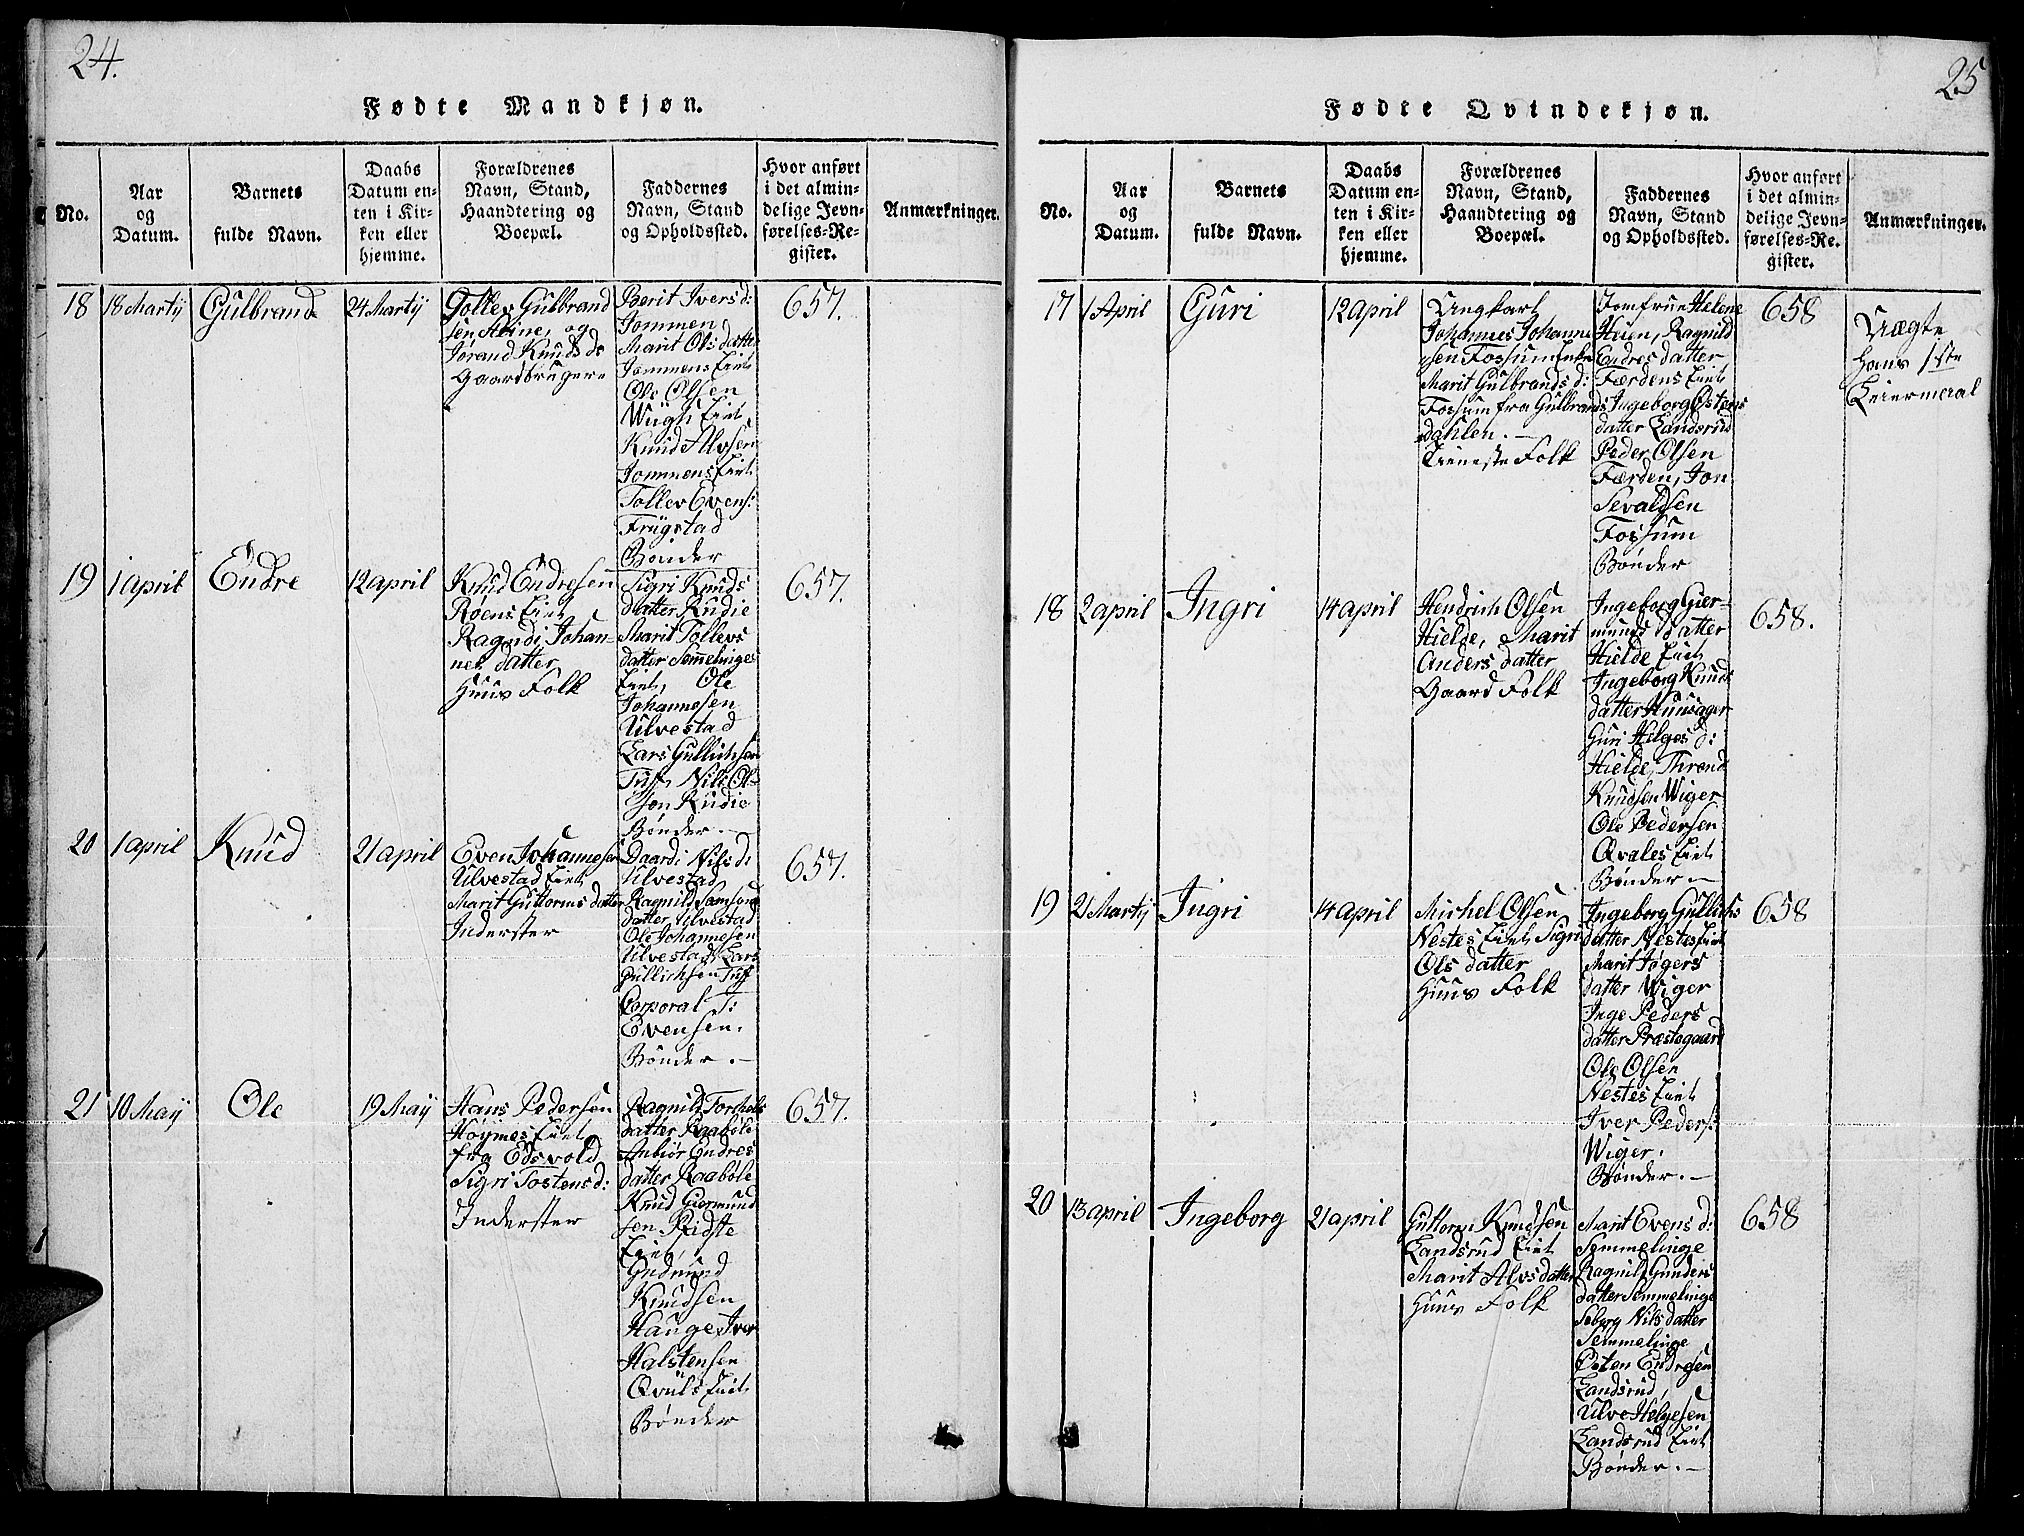 24.
Fødte Mandkjøn.
No.
Aar
og
Datum.
Barnets
fulde Navn.
Daabs
Datum en-
ten i Kir-
ken eller
hjemme.
Forældrenes
Navn, Stand,
Haandtering og
Boepæl.
Faddernes
Navn, Stand
og Opholdssted.
Hvor anført
i det almin-
delige Jevn-
førelses-Re-
gister.
Anmærkninger.
18
18 Martÿ
Gulbrand
24 Martÿ
Tollev Gulbrand
sen Abine, og
Jørand Knuds ds
Gaardbrugere
Berit Ivers d:
Jommen,
Marit Ols datter
Jommens Eiet
Ole Olsen
Wiigh Eiet
Knud Alvsen
Jommens Eiet
Tollev Evens:
Friigstad
Bønder
657.
19
1 April
Endre
12 april
Knud Endresen
Røens Eiet
Ragndi Johan-
nes datter
Huus Folk
Sigri Knuds
datter Rudie
Marit Tollevs
datter Semelinges
Eiet, Ole
Johannesen
Ulvestad
Lars Gullichsen
Tuff, Nils Ol-
sen Rudie
Bønder.
657.
20
1 april
Knud
21 april
Even Johannesen
Ulvestad Eiet
Marit Guttorms datter
Inderster
Daardi Nils d:
Ulvestad,
Ragnild Samsons
datter Ulvestad
Ole Johannesen
Ulvestad, Lars
Gullichsen Tuff
Corporal T:
Evensen.
Bønder.
657.
21
10 Maÿ
Ole
19 Maÿ
Hans Pedersen
Høÿmes Eiet
fra Edsvold,
Sigri Tostens d:
Inderster
Ragnild Torchels
datter Raabøle
Anbiør Endres
datter Raabøle
Knud Giermund
sen Reidste
Eiet,
Gudmund
Knudsen
Hauge, Iver
Halstensen
Qvals Eiet
Bønder
657.
25
Fødte Qvindekjøn.
No.
Aar
og
Datum.
Barnets
fulde Navn.
Daabs
Datum en-
ten i Kir-
ken eller
hjemme.
Forældrenes
Navn, Stand,
Haandtering og
Boepæl.
Faddernes
Navn, Stand
og Opholdssted.
Hvor anført
i det almin-
delige Jevn-
førelses-Re-
gister.
Anmærkninger.
17
1 April
Guri
12 april
Ungkarl
Johannes Johanne
sen Fossum Enke
Marit Gulbrands d:
Fossum fra Gulbrands
dahlen.
Tieneste Folk
Jomfrue Helene
Heien, Ragnild
Endres datter
Færdens Eiet
Ingeborg Østens
datter Landsrud
Peder Olsen
Færden, Jon
Sevaldsen
Fossum
Bønder
658
Uægte
Hans 1ste
Leiermaal
18
2 april
Ingri
14 april
Hendrich Olsen
Hielde, Marit
Anders datter
Gaard Folk
Ingeborg Gier-
munds datter
Hielde Eiet
Ingeborg Knuds
datter Hunsager
Guri Helges d:
Hielde, Thrond
Knudsen Wiger
Ole Pedersen
Qvales Eiet
Bønder.
658.
19
21 Martÿ
Ingri
14 april
Michel Olsen
Nestes Eiet Sigri
Ols datter
Huus Folk
Ingeborg Gullichs
datter Nestes Eiet
Marit Jøgers
datter Wiger
Inge Peders
datter Præstegaard
Ole Olsen
Nestes Eiet
Iver Peders:
Wiger.
Bønder.
658
20
13 april
Ingeborg
21 april
Guttorm Knudsen
Landsrud Eiet
Marit Alvs datter
Huus Folk
Marit Evens d:
Semmelinge
Ragnild Gunders
datter Semmelinge
Seborg Nils datter
Semmelinge
Østen Endresen
Landsrud,
Ulve Helgesen
Landsrud Eiet
Bønder.
658